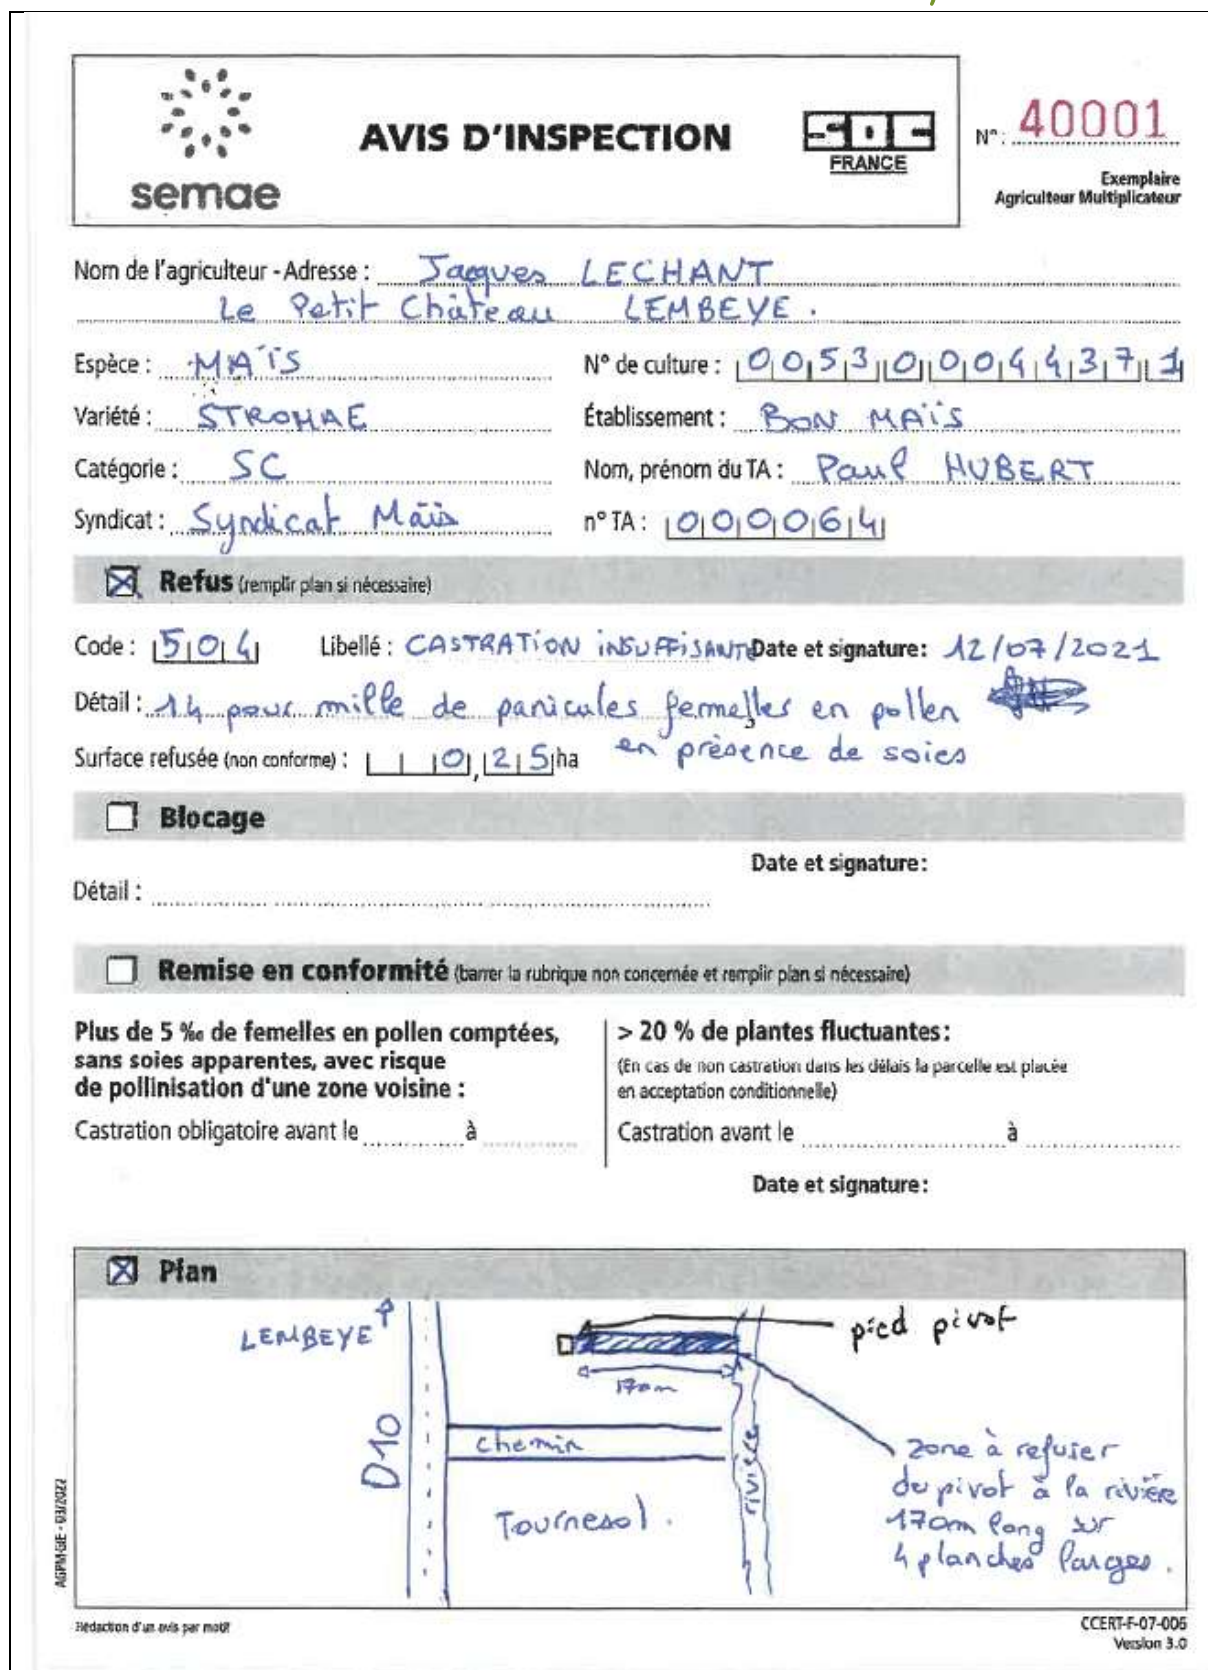 semae
AVIS D'INSPECTION
SOC
FRANCE
N°: 40001
Exemplaire
Agriculteur Multiplicateur
Nom de l'agriculteur - Adresse : Jacques LECHANT
Le Petit Château LEMBEYE.
Espèce : MAÏS
N° de culture : 005300044371
Variété : STROMAE
Établissement : BON MAÏS
Catégorie : SC
Nom, prénom du TA : Paul HUBERT
Syndicat : Syndicat Maïs
n° TA : 000064
Refus (remplir plan si nécessaire)
Code : 504 Libellé : CASTRATION INSUFFISANTE Date et signature: 12/07/2021
Détail : 14 pour mille de panicules femelles en pollen
en présence de soies
Surface refusée (non conforme) : 0,25 ha
Blocage
Date et signature:
Détail :
Remise en conformité (barrer la rubrique non concernée et remplir plan si nécessaire)
Plus de 5 ‰ de femelles en pollen comptées,
sans soies apparentes, avec risque
de pollinisation d'une zone voisine :
Castration obligatoire avant le à
> 20 % de plantes fluctuantes:
(En cas de non castration dans les délais la parcelle est placée
en acceptation conditionnelle)
Castration avant le à
Date et signature:
Plan
LEMBEYE
pied pivot
170m
D10
chemin
rivière
Tournesol.
zone à refuser
du pivot à la rivière
170m long sur
4 planches larges.
AGPM-GIE - 03/2022
Rédaction d'un avis par motif
CCERT-F-07-006
Version 3.0